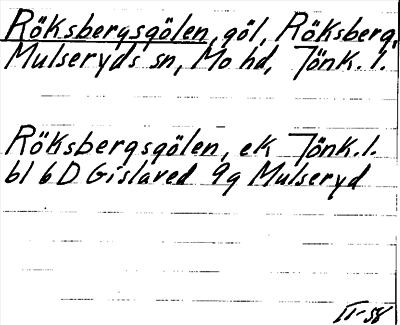 Röksbergsgölen, göl, Röksberg,
Mulseryds sn, Mo hd, Jönk. l.
Röksbergsgölen, ek Jönk. l.
bl 6D Gislaved 9g Mulseryd
II-58